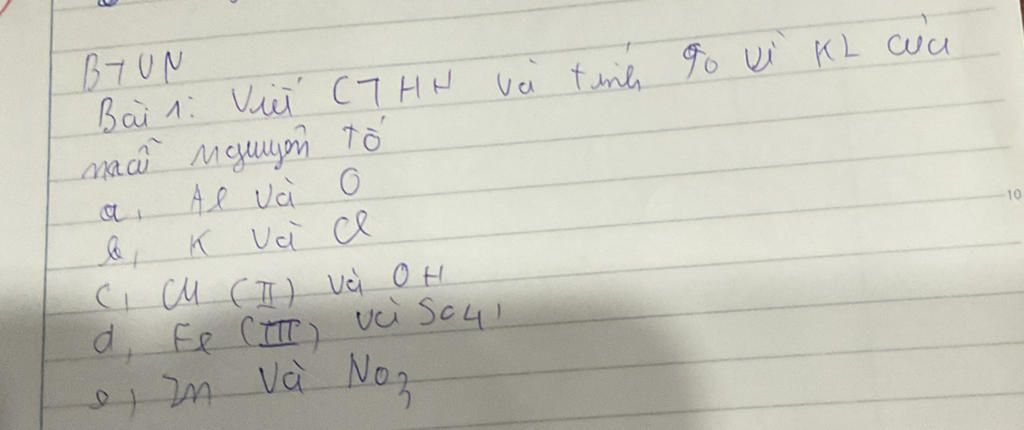 BTVN
Bài 1: Viết CTHH và tính % về KL của
mỗi nguyên tố
a, Al và O
b, K và Cl
c, Cu (II) và OH
d, Fe (III) và SO4
e, Zn và NO3
10